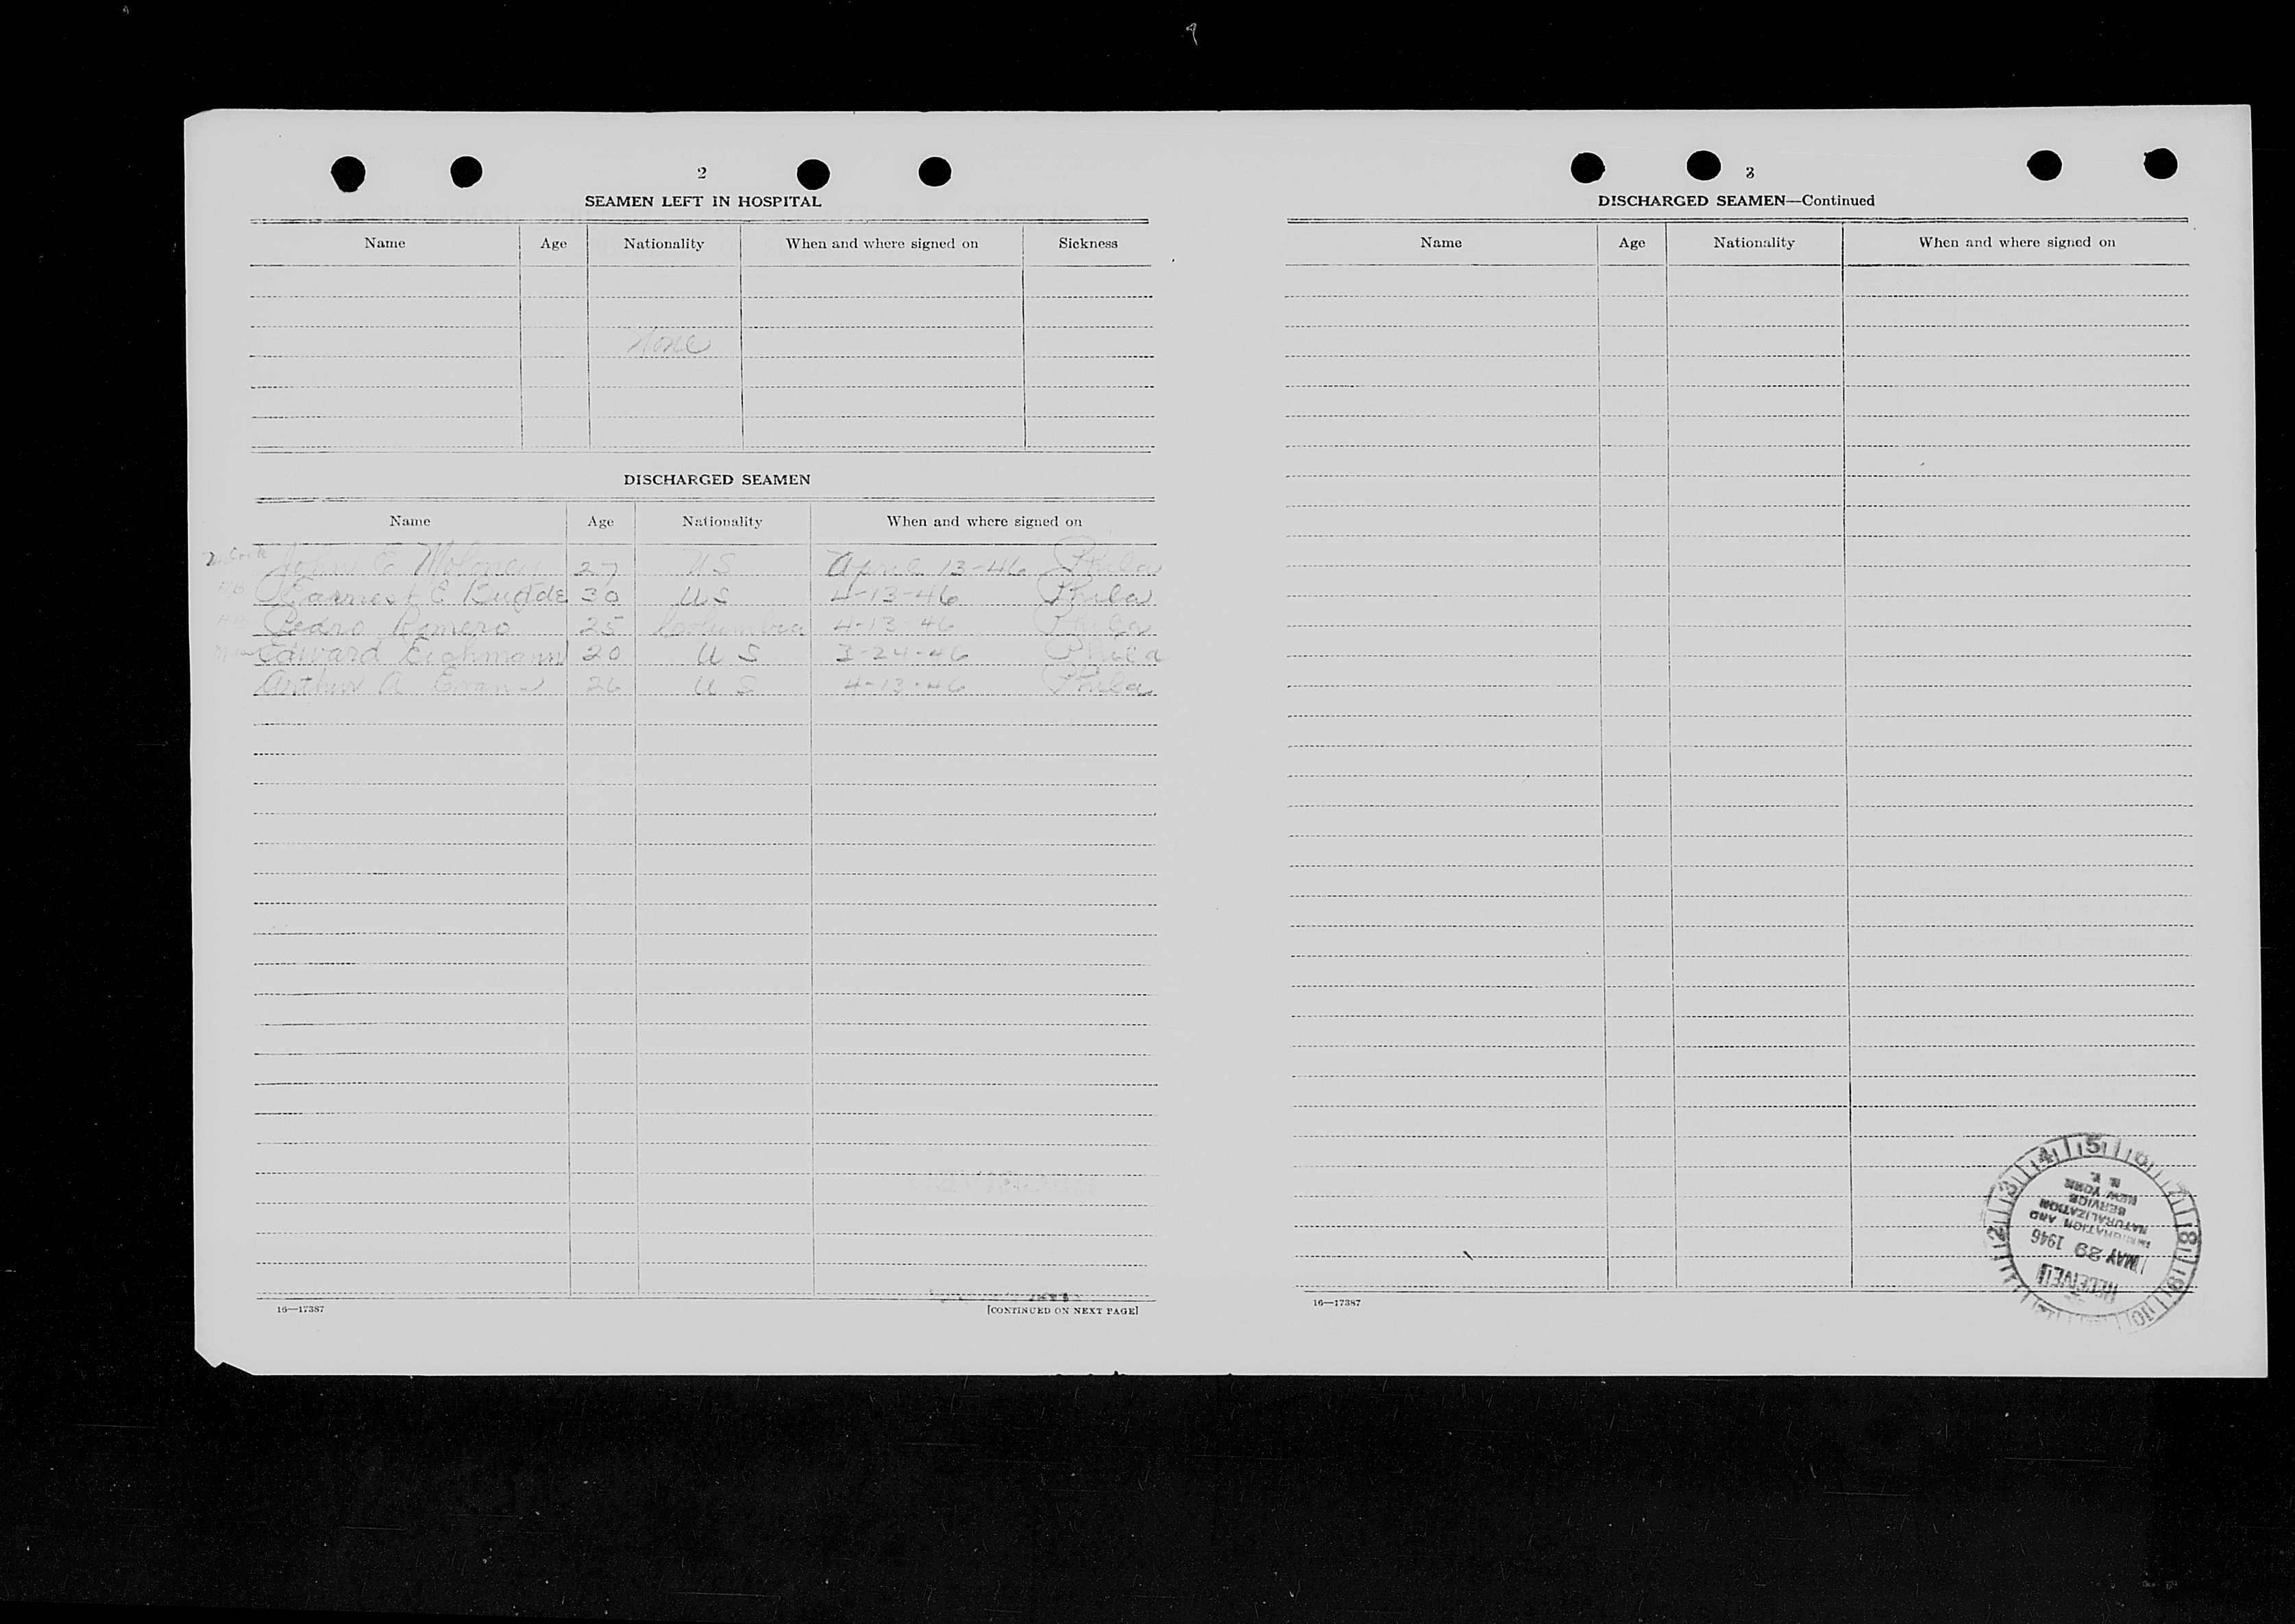 2
SEAMEN LEFT IN HOSPITAL
Name Age Nationality When and where signed on Sickness
None
DISCHARGED SEAMEN
Name Age Nationality When and where signed on
John E Moloney 27 US April 13-46 Phila
Earnest E 30 US 4-13-46 Phila
Pedro Romero 25 Columbia 4-13-46 Phila
Edward Eichmann 20 US 3-24-46 Phila
Arthur A 26 US 4-13-46 Phila
16—17387
[CONTINUED ON NEXT PAGE]
3
DISCHARGED SEAMEN—Continued
Name Age Nationality When and where signed on
16—17387
RECEIVED
MAY 29 1946
IMMIGRATION AND
NATURALIZATION
SERVICE
NEW YORK
N. Y.